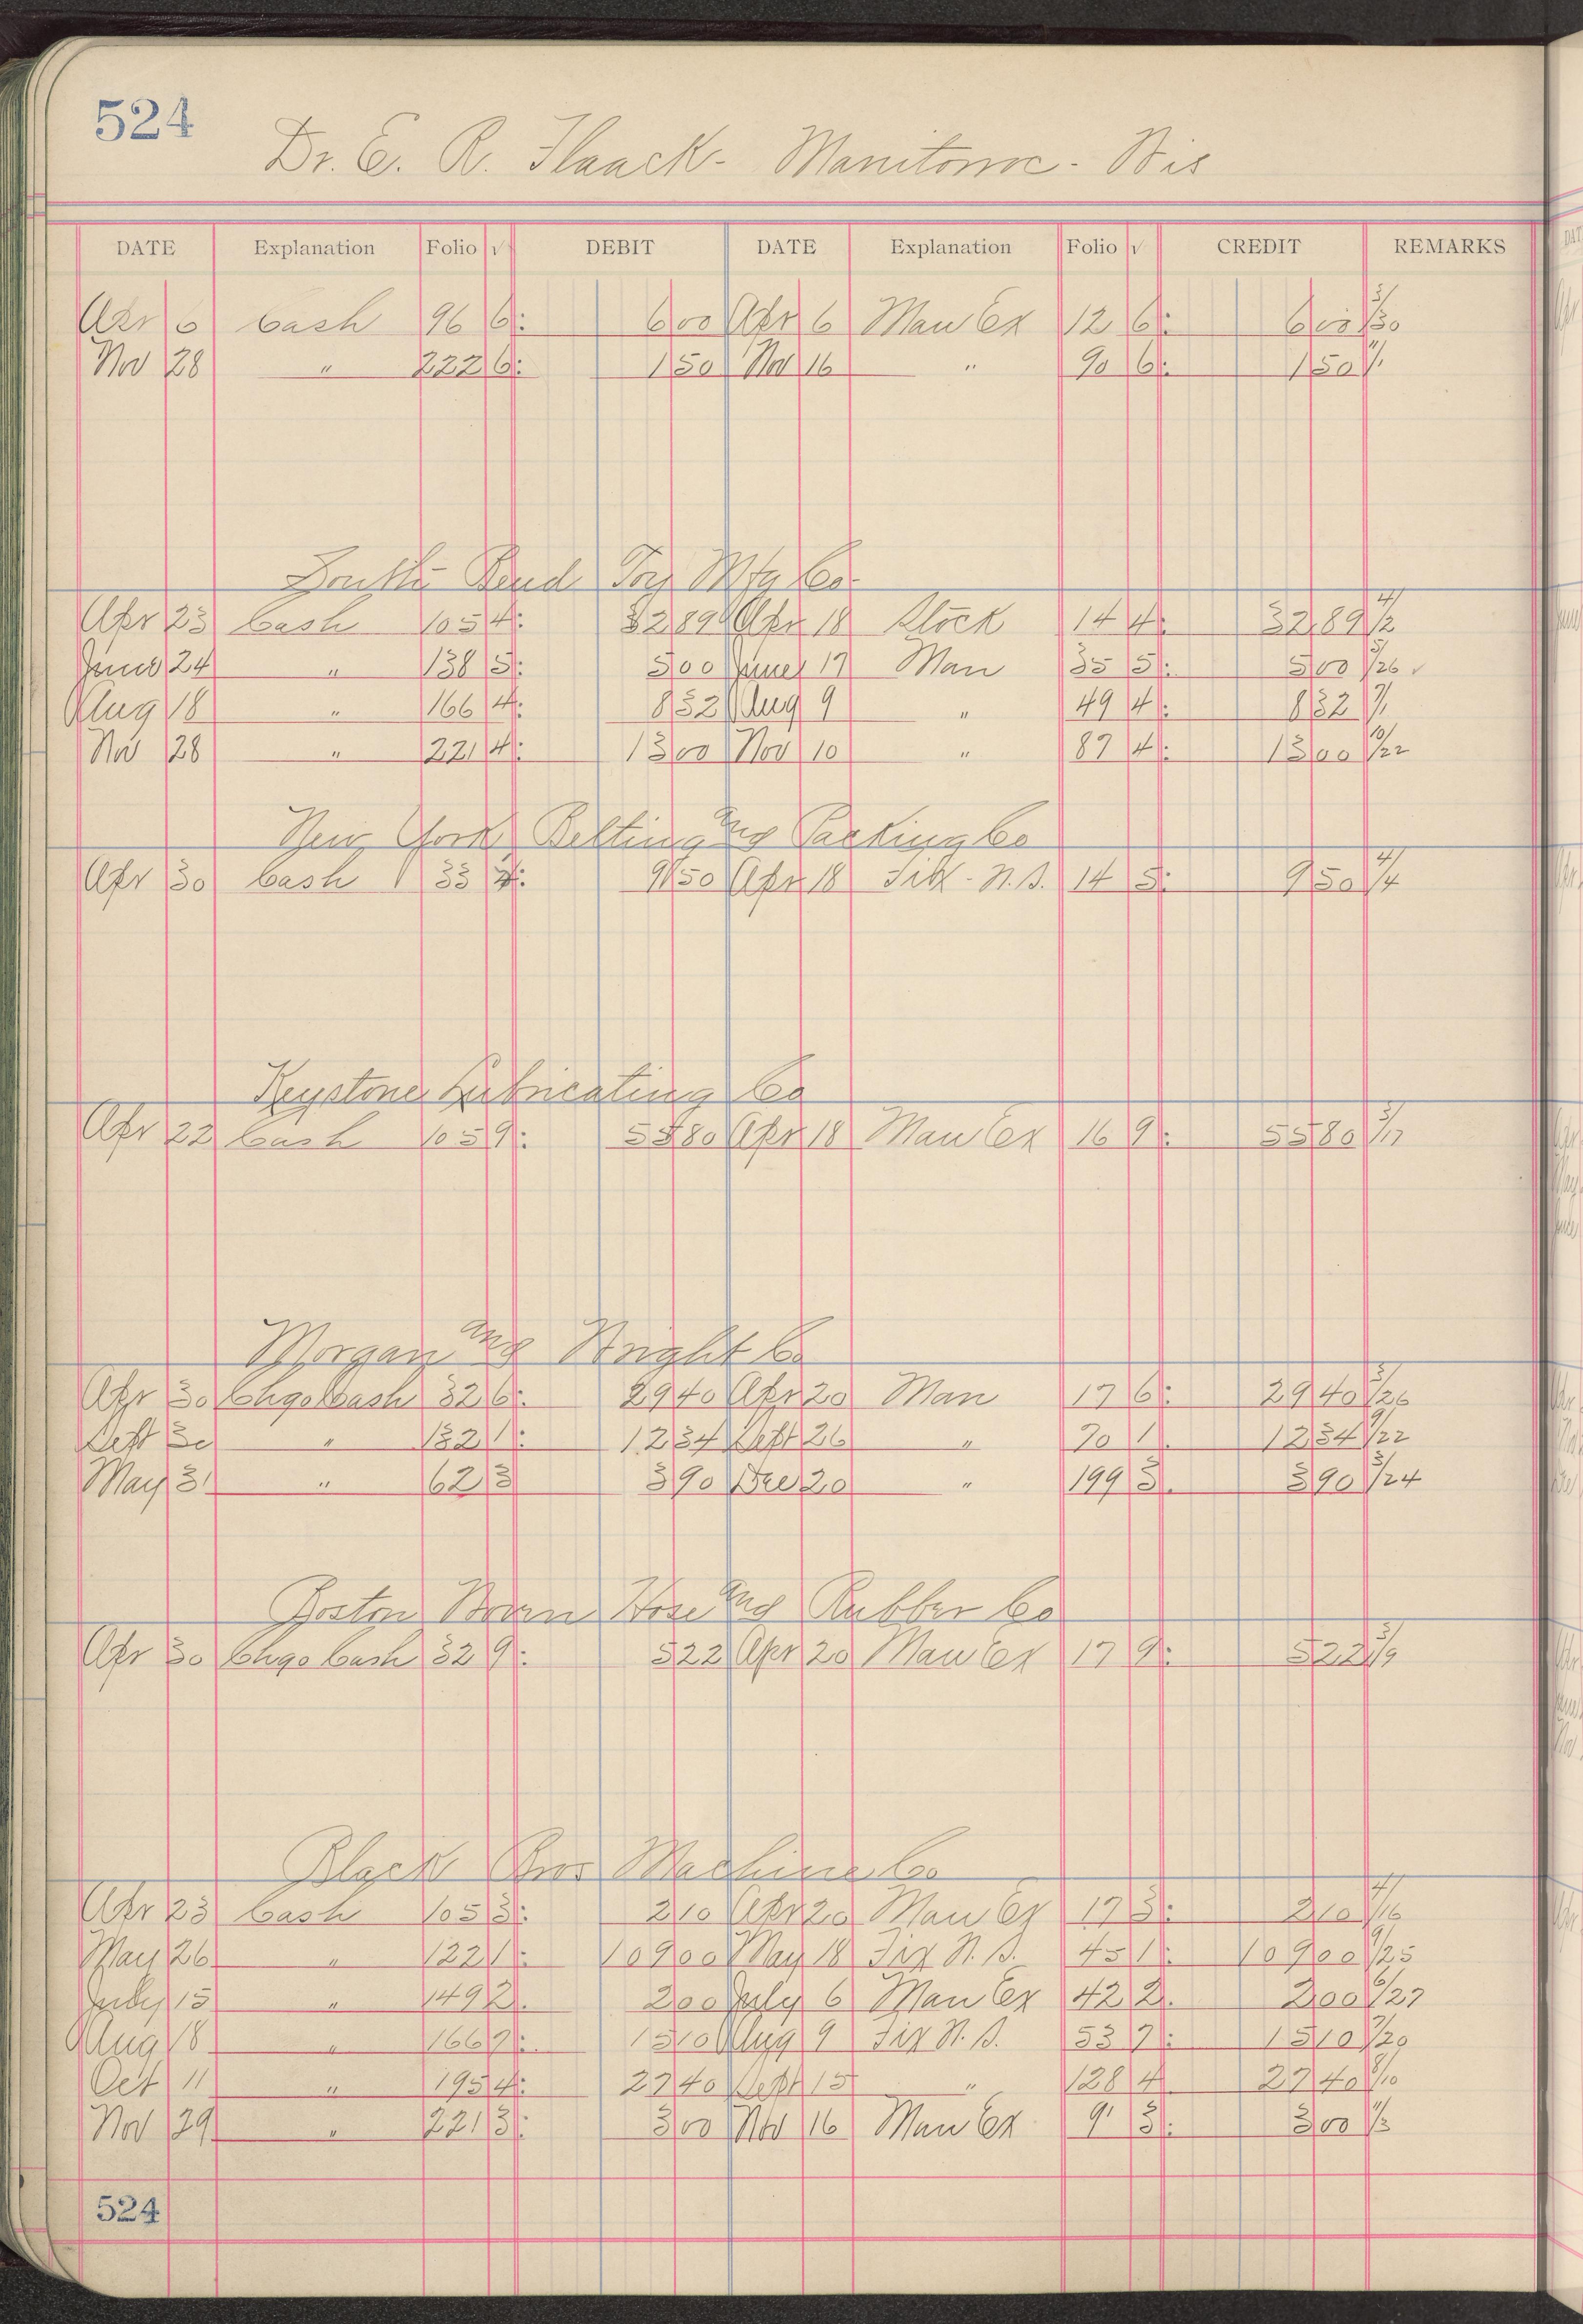 524
Dr. E. R. Haack - Manitowoc - Wis
DATE Explanation Folio √ DEBIT DATE Explanation Folio √ CREDIT REMARKS
Apr 6 Cash 96 6: 600 Apr 6 Man Ex 12 6: 600 3/30
Nov 28 " 222 6: 150 Nov 16 " 90 6: 150
South Bend Toy Mfg Co.
Apr 23 Cash 105 4: 3289 Apr 18 Stock 14 4: 3289 4/2
June 24 " 138 5: 500 June 17 Man 35 5: 500 5/26 ✓
Aug 18 " 166 4: 832 Aug 9 " 49 4: 832
Nov 28 " 221 4: 1300 Nov 10 " 87 4: 1300 10/22
New York Belting and Packing Co
Apr 30 Cash 33 4: 950 Apr 18 Fix - N.S. 14 5: 950 4/4
Keystone Lubricating Co
Apr 22 Cash 105 9: 5580 Apr 18 Man Ex 16 9: 5580 3/17
Morgan and Wright Co
Apr 30 Chgo Cash 32 6: 2940 Apr 20 Man 17 6: 2940 3/26
Sept 30 " 132 1: 1234 Sept 26 " 70 1. 1234 9/22
May 31 " 62 3 390 Dec 20 " 199 3. 390 3/24
Boston Woven Hose and Rubber Co
Apr 30 Chgo Cash 32 9: 522 Apr 20 Man Ex 17 9: 522 3/9
Black Bros Machine Co
Apr 23 Cash 105 3: 210 Apr 20 Man Ex 17 3: 210 4/16
May 26 " 122 1: 10900 May 18 Fix N.S. 45 1: 10900
July 15 " 149 2. 200 July 6 Man Ex 42 2. 200 6/27
Aug 18 " 166 7: 1510 Aug 9 Fix N.S. 53 7: 1510 7/20
Oct 11 " 195 4: 2740 Sept 15 " 128 4. 2740 8/10
Nov 29 " 221 3: 300 Nov 16 Man Ex 91 3: 300
524